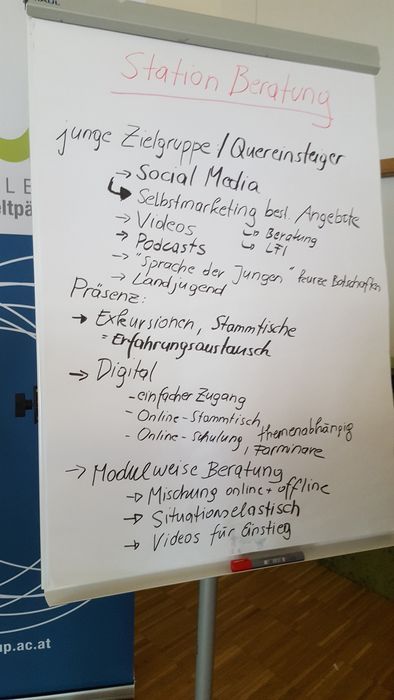 Station Beratung
junge Zielgruppe / Quereinsteiger
→ Social Media
↳ Selbstmarketing best. Angebote
→ Videos ↳ Beratung
→ Podcasts ↳ LFI
→ "Sprache der Jungen" kurze Botschaften
→ Landjugend
Präsenz:
→ Exkursionen, Stammtische
= Erfahrungsaustausch
→ Digital
- einfacher Zugang
- Online-Stammtisch,
- Online-Schulung, themenabhängig
, Farminare
→ Modulweise Beratung
→ Mischung online + offline
→ Situationselastisch
→ Videos für Einstieg
LE
eltpä
up.ac.at